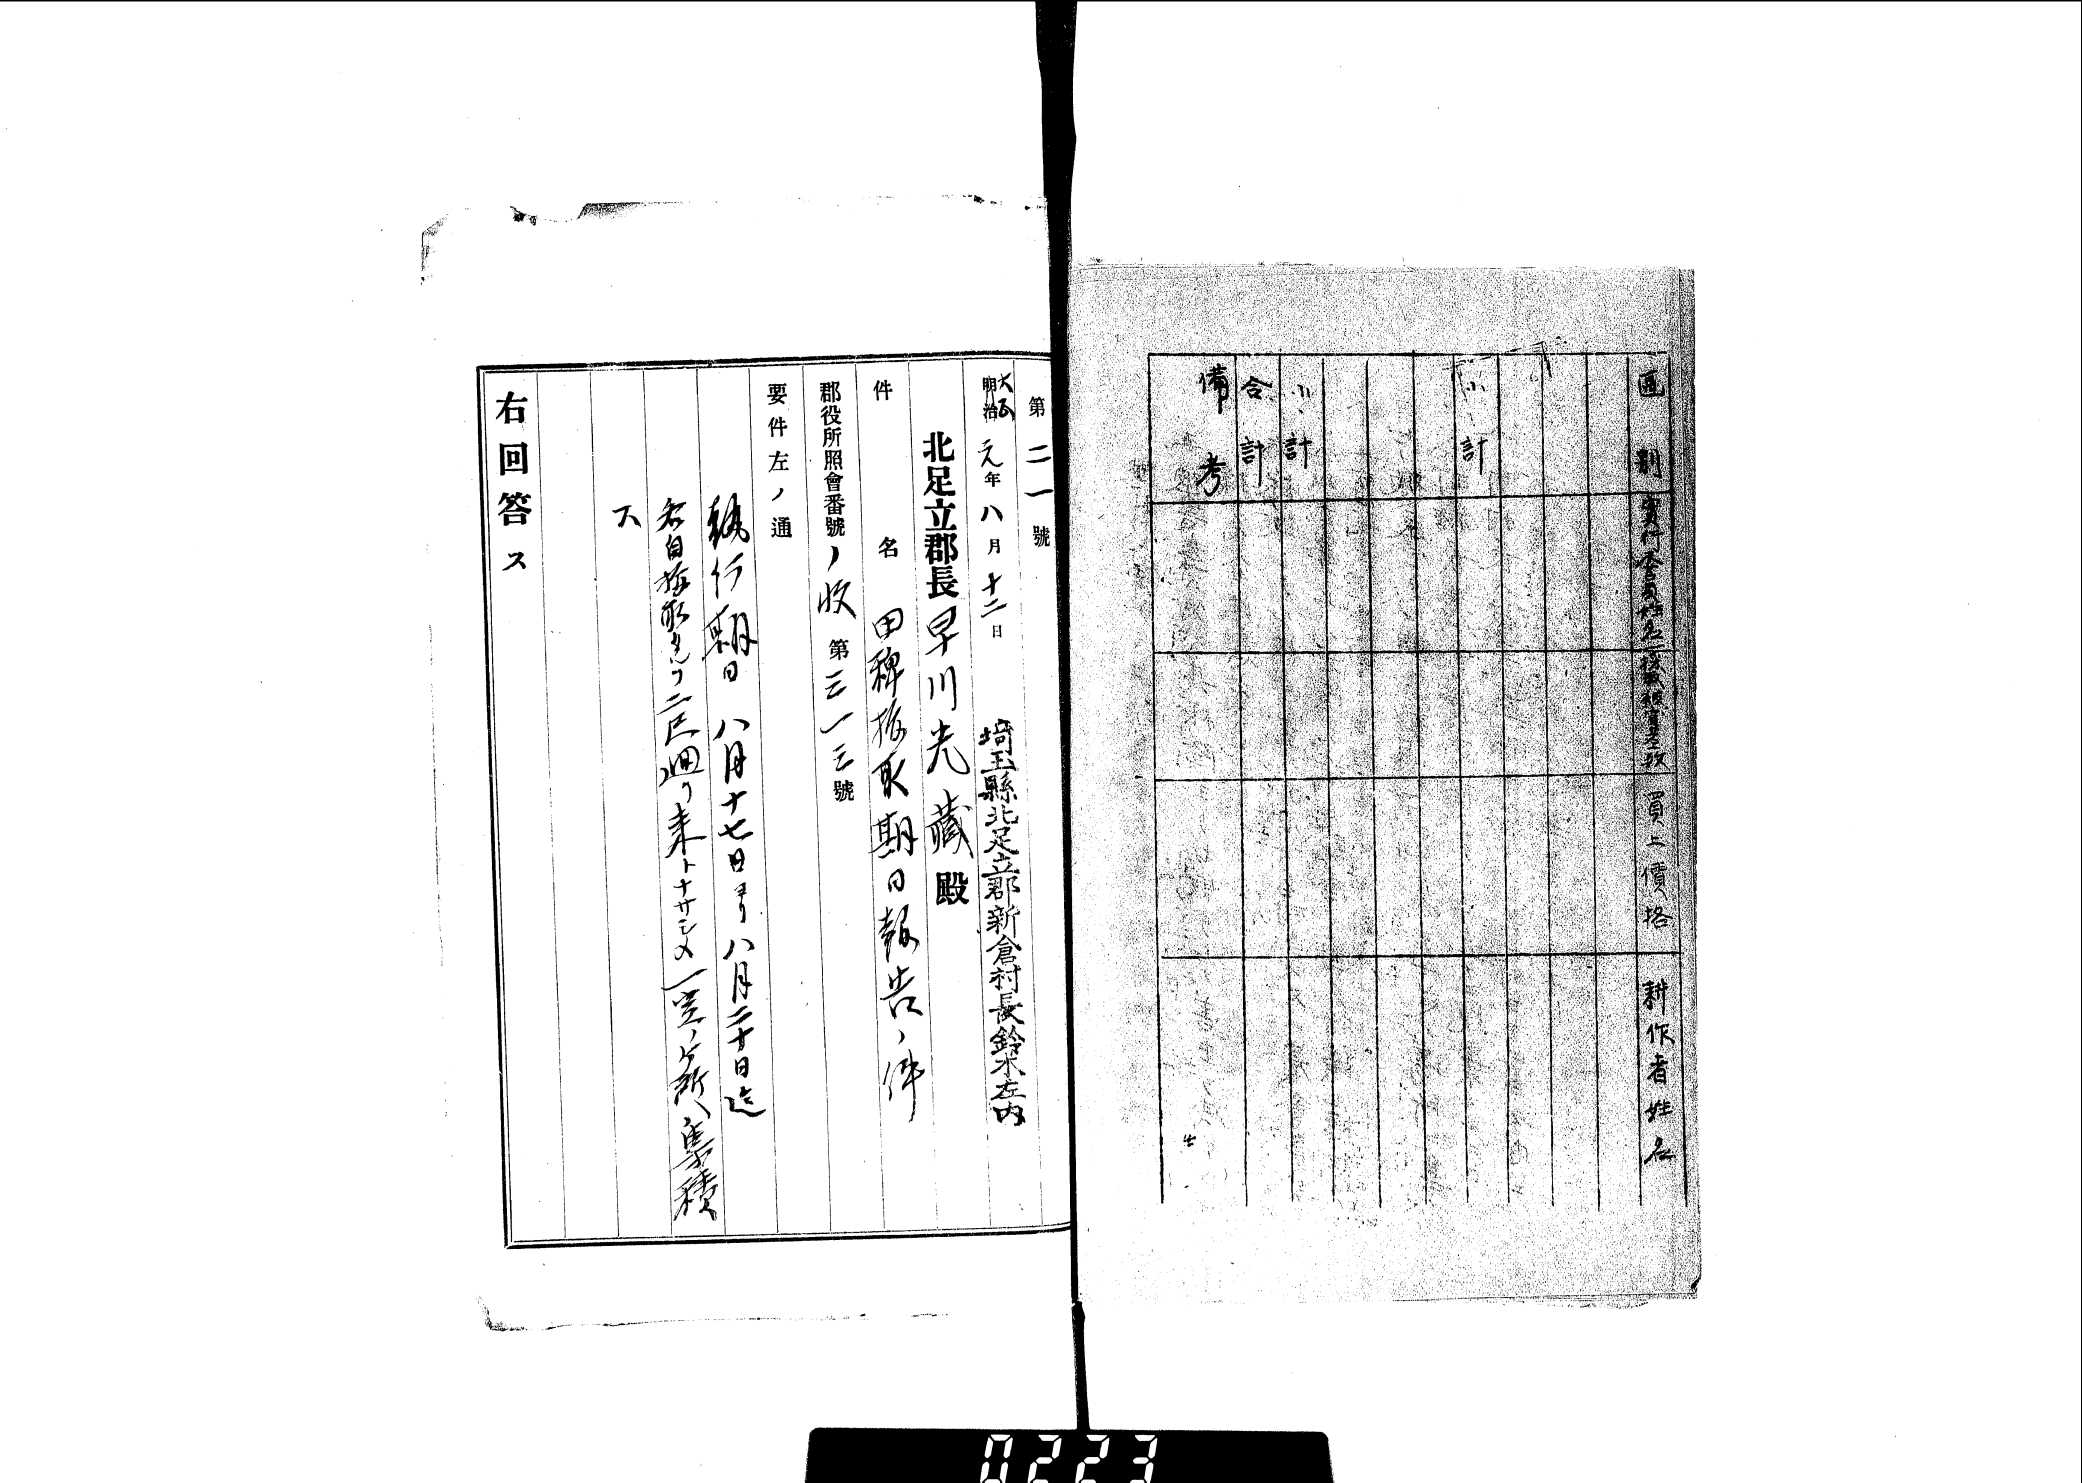 區別
實行委員姓名
採取概算參考
買上價格
耕作者姓名
小計
小計
合計
備考
第二一號
大正
明治
元年八月十二日
埼玉縣北足立郡新倉村長鈴木左内
北足立郡長早川光藏殿
件名 田稗拔取期日報告ノ件
郡役所照會番號ノ收第三一三號
要件左ノ通
執行期日 八月十七日ヨリ八月二十日迄
各自拔取タルヲ二尺廻リ束トナサシメ一定ノ箇所ヘ集積
ス
右回答ス
0223